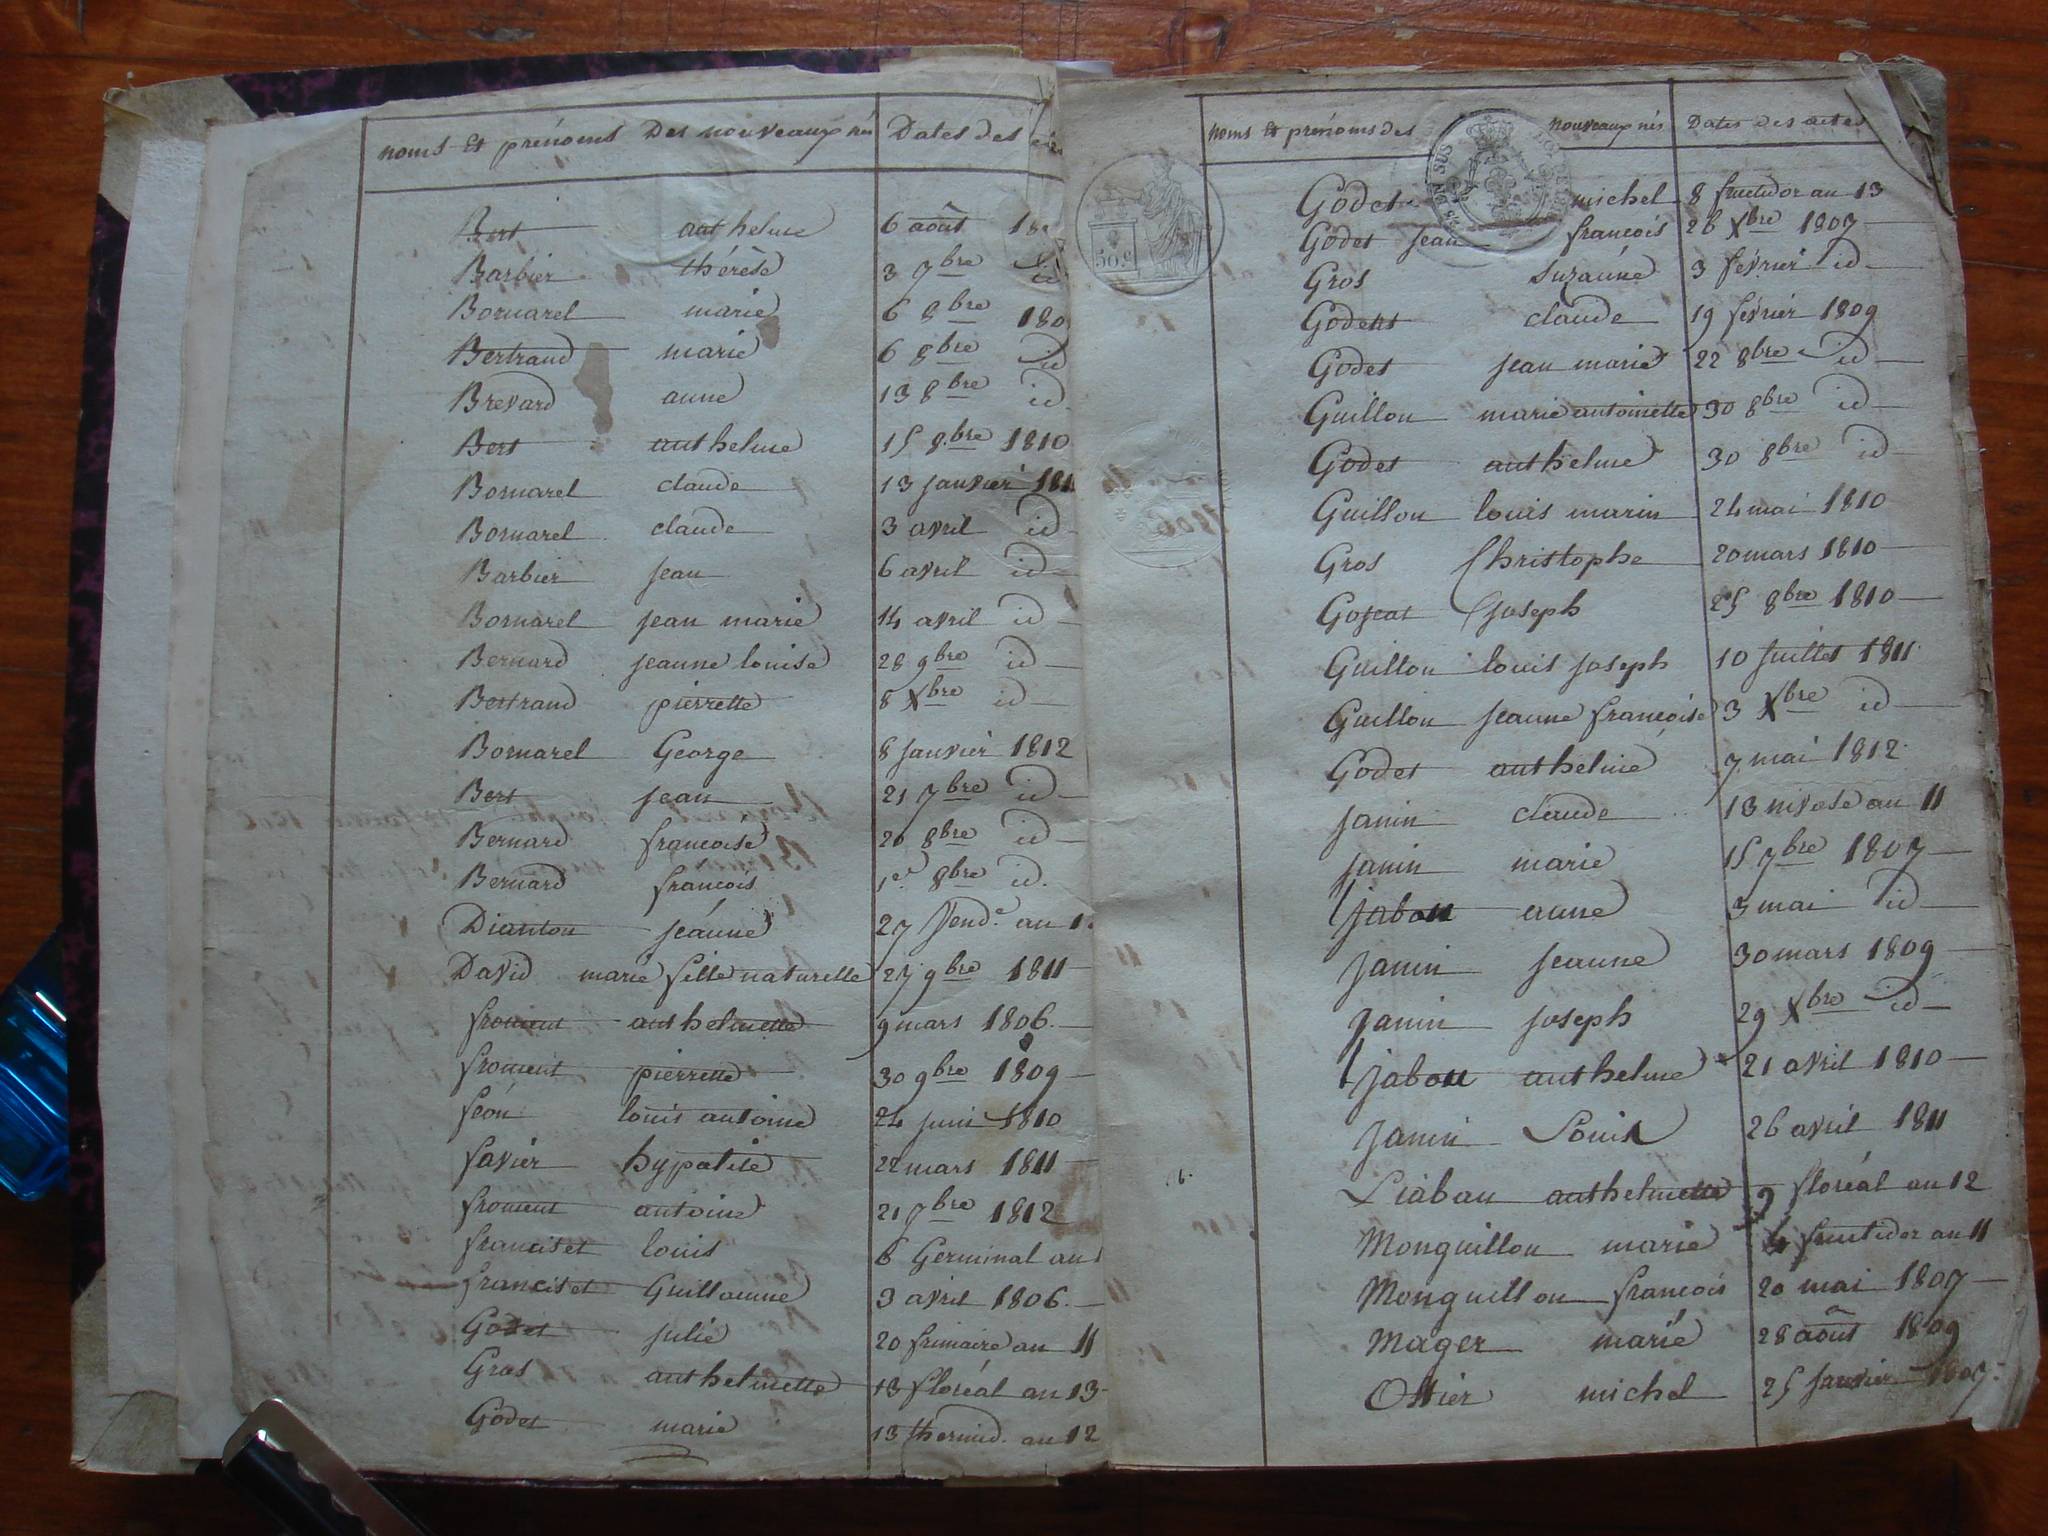 noms et prénoms Des nouveaux nés Dates des
Bert anthelme 6 août
Barbier thérèse 3 7bre
Bornarel marie 6 8bre 180
Bertrand marie 6 8bre id
Brevard anne 13 8bre id
Bert anthelme 15 8bre 1810
Bornarel claude 13 janvier 181
Bornarel claude 3 avril id
Barbier jean 6 avril id
Bornarel jean marie 14 avril id
Bernard jeanne louise 28 9bre id
Bertrand pierrette 8 Xbre id
Bornarel George 8 janvier 1812
Bert jean 21 7bre id
Bernard francoise 20 8bre id
Bernard francois 1er 8bre id.
Dianton jeanne 27 Vend.e an 1
David marie fille naturelle 27 9bre 1811
froment anthelmette 9 mars 1806.
froment pierrette 30 9bre 1809
féon louis antoine 24 juin 1810
favier hypolite 22 mars 1811
froment antoine 21 7bre 1812
franciset louis 6 Germinal an
franciset Guillaume 3 avril 1806.
Godet julie 20 frimaire an 11
Gros anthelmette 13 floréal an 13
Godet marie 13 thermid. an 12
noms et prénoms des nouveaux nés Dates des actes
50 c
Godet michel 8 fructidor an 13
Godet jean francois 26 Xbre 1807
Gros suzanne 3 février id
Godet claude 19 février 1809
Godet jean marie 22 8bre id
Guillon marie antoinette 30 8bre id
Godet anthelme 30 8bre id
Guillon louis marin 24 mai 1810
Gros Christophe 20 mars 1810
Gojeat joseph 25 8bre 1810
Guillon louis joseph 10 juillet 1811
Guillon jeanne françoise 3 Xbre id
Godet anthelme 7 mai 1812
janin claude 13 nivose an 11
janin marie 15 7bre 1807
jabou anne 3 mai id
janin jeanne 30 mars 1809
janin joseph 29 Xbre id
jabou anthelme 21 avril 1810
janin Louis 26 avril 1811
Liabau anthelmette 9 floréal an 12
Monguillon marie fructidor an 11
Monguillon francois 20 mai 1807
Mager marie 28 août 1809
Ottier michel 25 janvier